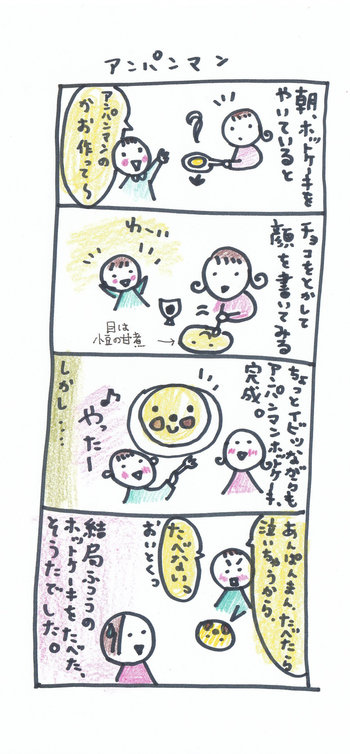 アンパンマン
朝、ホットケーキを
やいていると
アンパンマンの
かお作って〜
チョコをとかして
顔を書いてみる
わーい
目は
小豆の甘煮
ちょっとイビツながらも
アンパンマンホットケーキ、
完成。
やったー
しかし・・・
あんぱんまん、たべたら
泣いちゃうから、
たべないっ
おいとくっ
結局ふつうの
ホットケーキをたべた、
そうたでした。